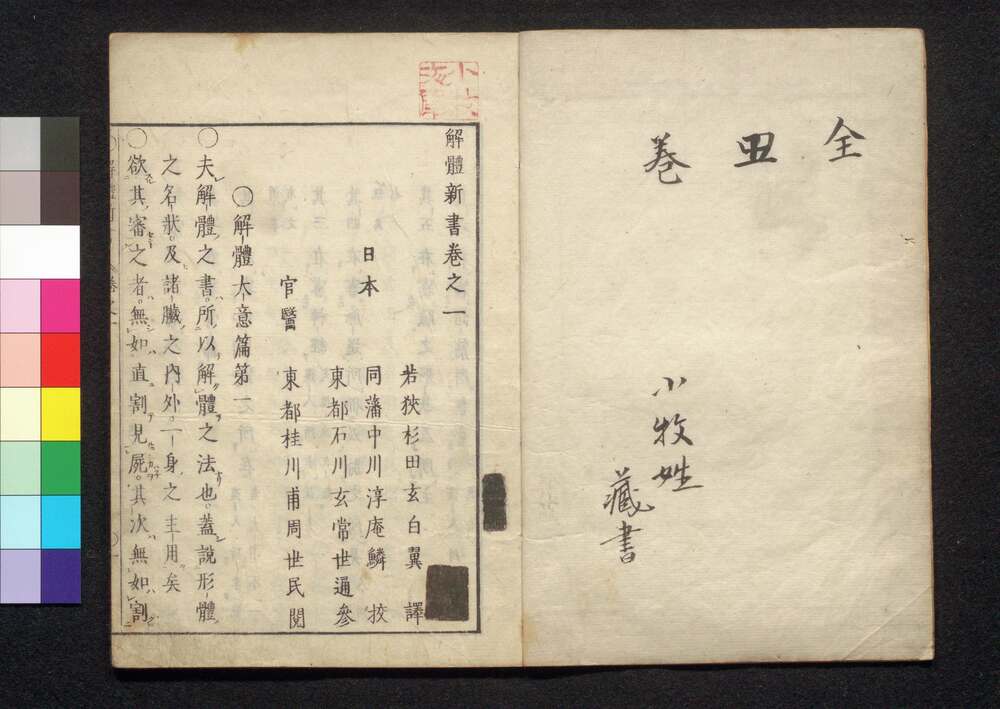 全丑巻
小牧姓
藏書
解體新書卷之一
若狹杉田玄白翼 譯
日本 同藩中川淳庵鱗 挍
東都石川玄常世通參
官醫 東都桂川甫周世民閱
○解體大意篇第一
○夫解體之書。所以解體之法也。蓋說形體
之名狀。及諸臟之內外。一身之主用矣
○欲其審之者。無如直割見屍。其次無如割